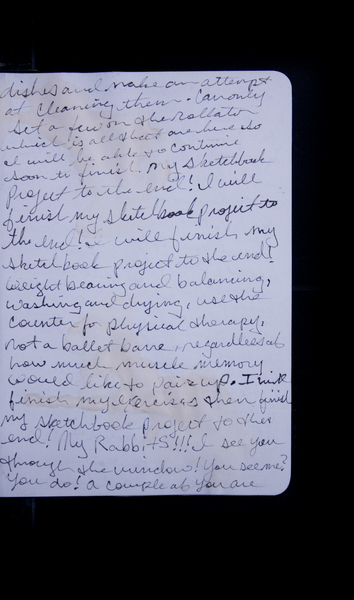 dishes and make an attempt
at cleaning them. Can only
set a few on the rollator
which is all that are here so
I will be able to continue
soon to finish my sketchbook
project to the end! I will
finish my sketchbook project to
the end! I will finish my
sketchbook project to the end!
Weight bearing and balancing,
washing and drying, use the
counter for physical therapy,
not a ballet barre, regardless of
how much muscle memory
would like to pair up. I will
finish my exercises then finish
my sketchbook project to the
end! My Rabbits!!! I see you
through the window! You see me?
You do! A couple of you are